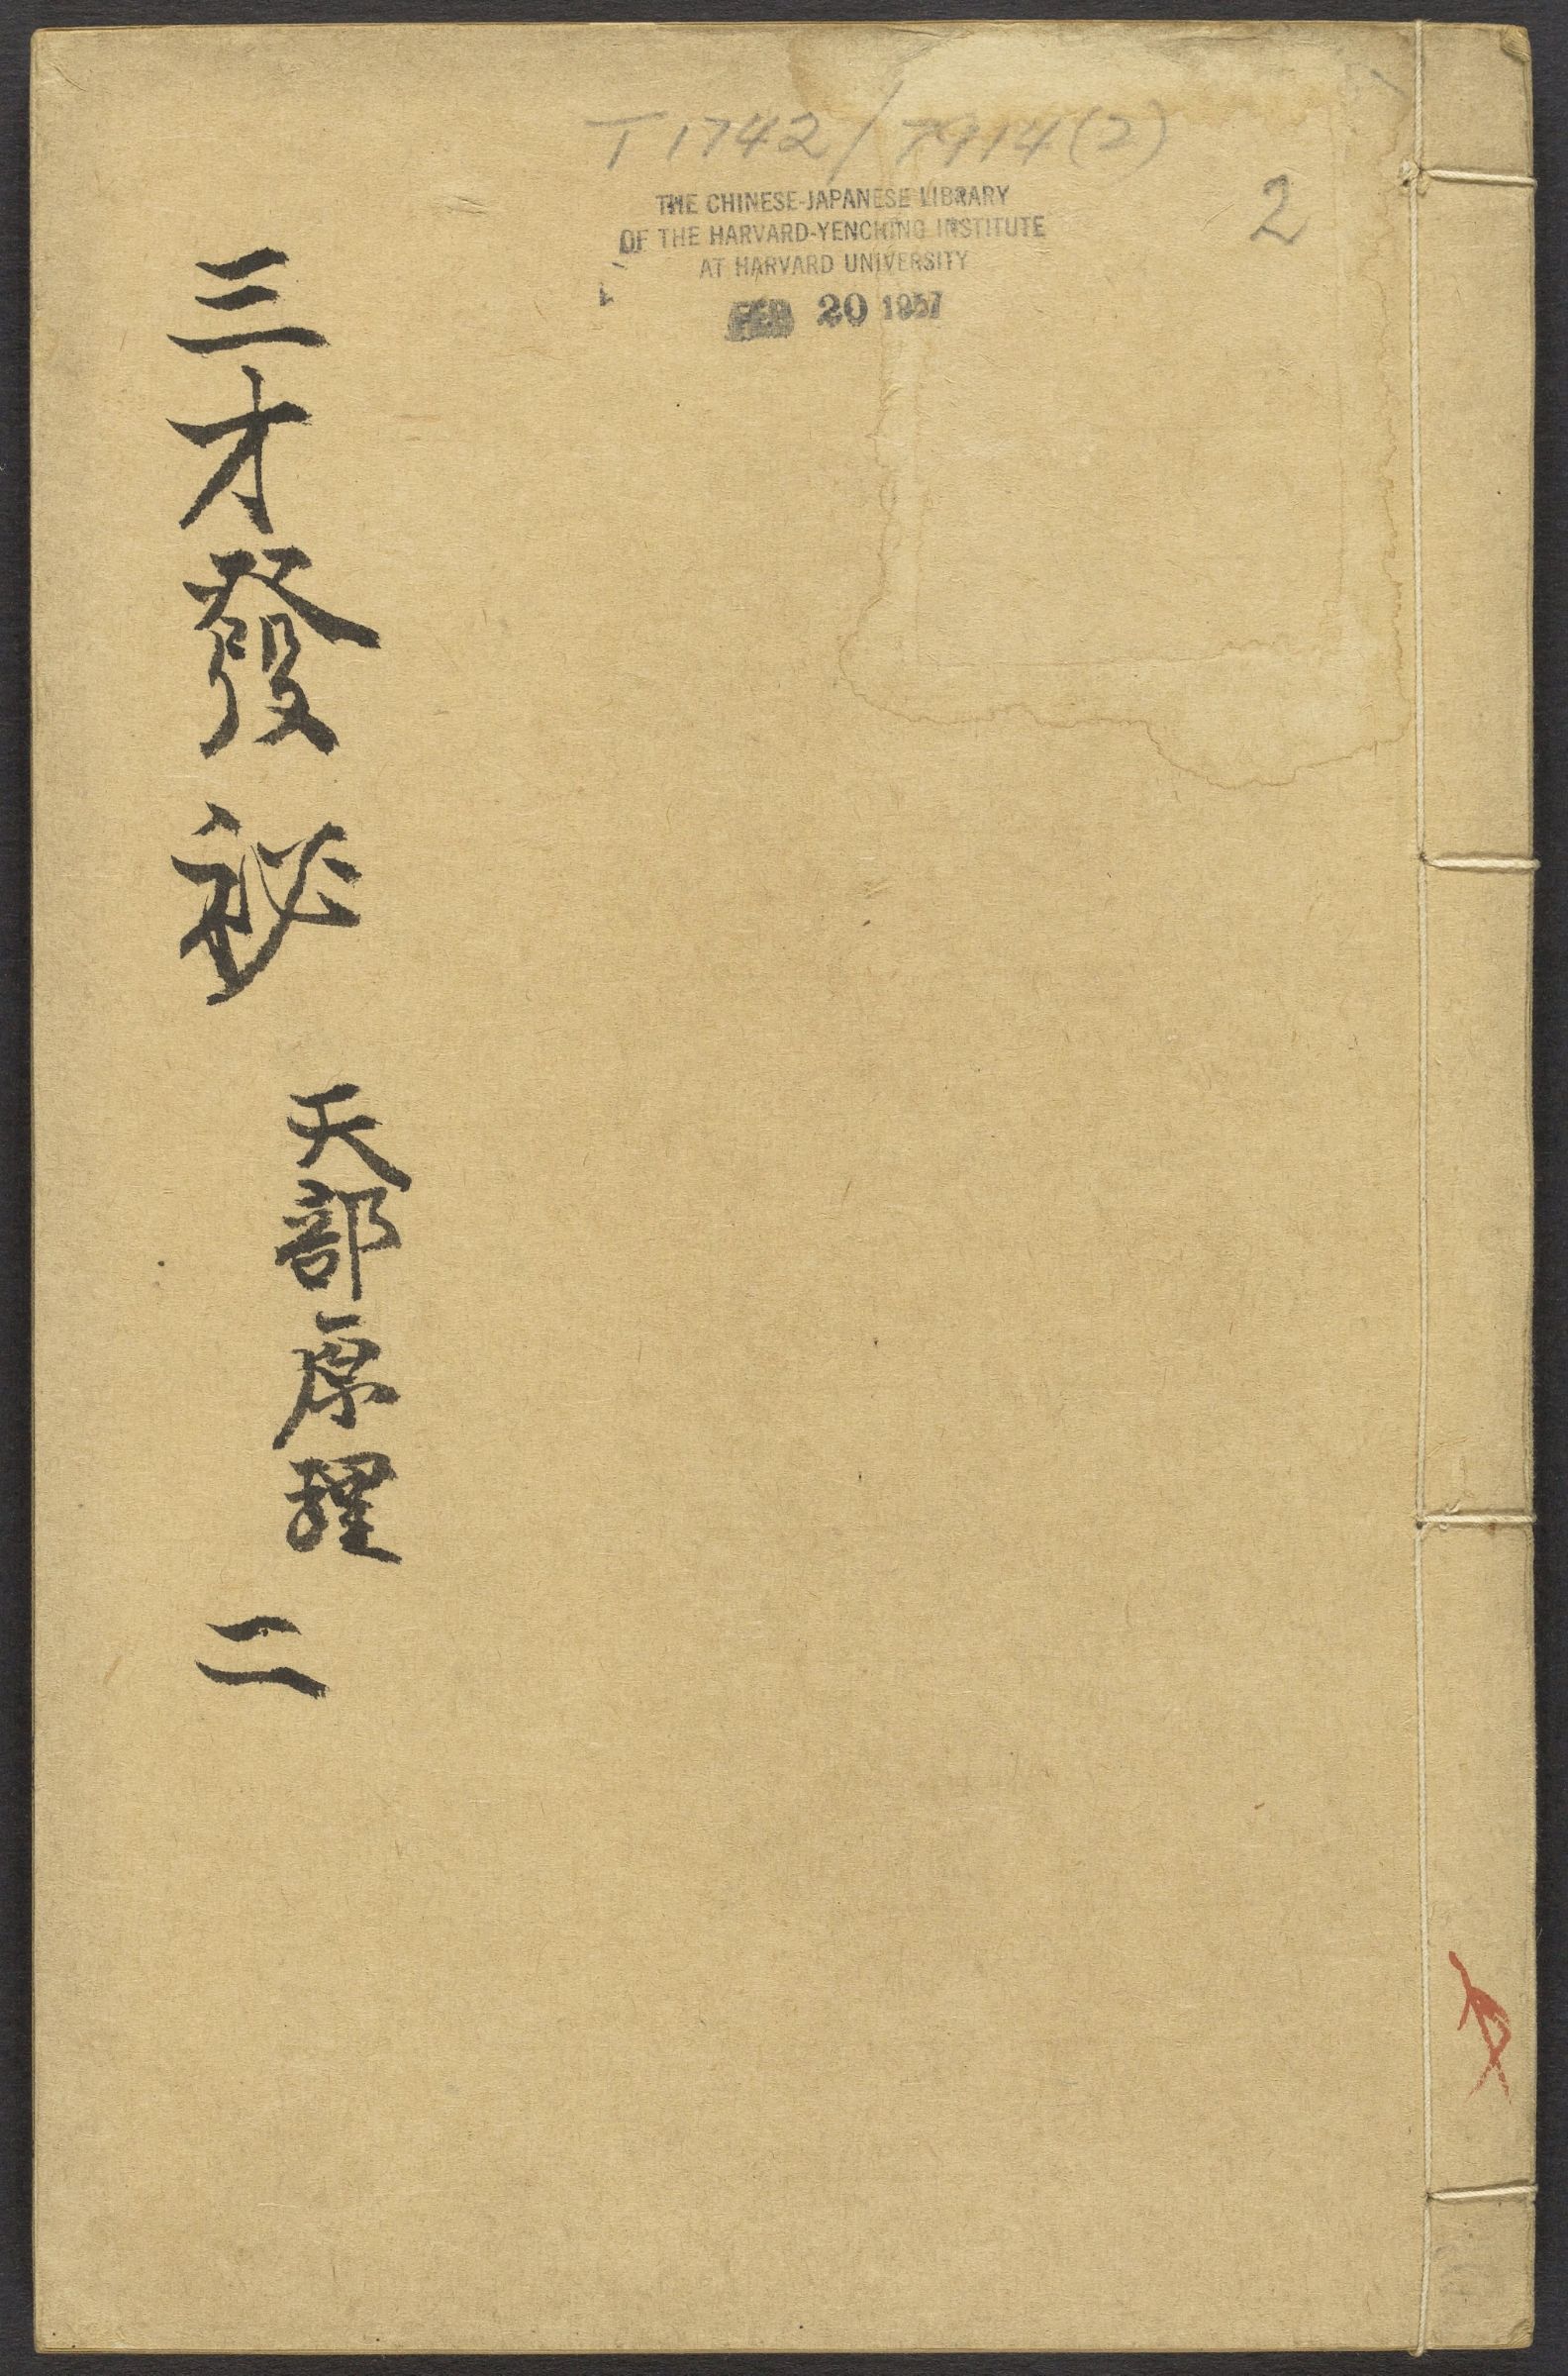 T 1742/7914(2)
2
THE CHINESE-JAPANESE LIBRARY
OF THE HARVARD-YENCHING INSTITUTE
AT HARVARD UNIVERSITY
FEB 20 1957
三才發祕
天部原
二